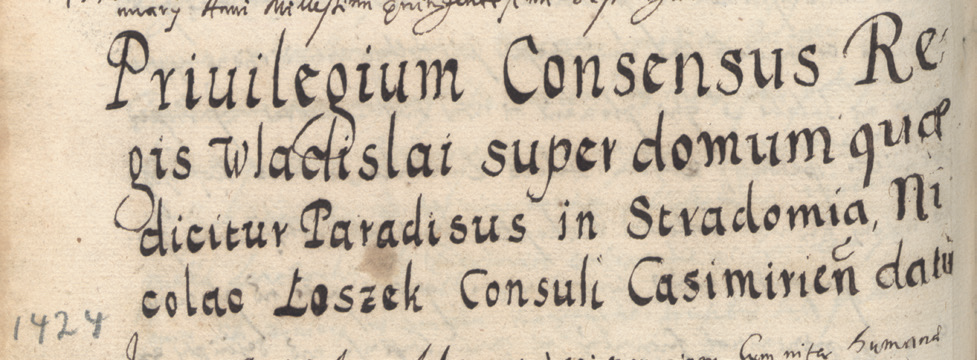 Anni Millesimi
Priuilegium Consensus Re
gis Wladislai super domum quæ
dicitur Paradisus in Stradomia, Ni
colao Łoszek Consuli Casimirien̄ datū
1424
humana